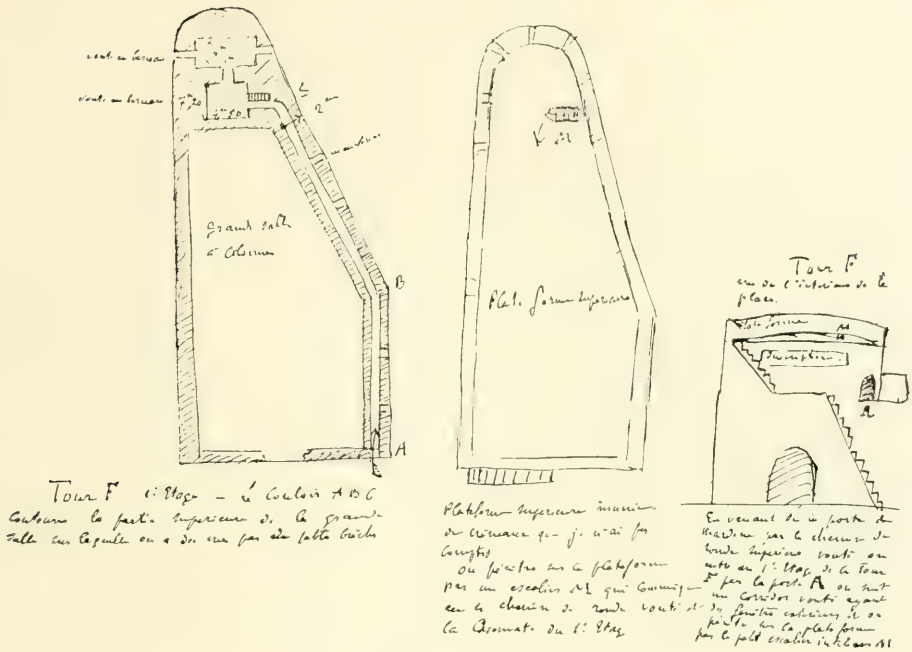 voute en berceau
voute en berceau
7,20
C
2 m
meurtrières
grande salle
à Colonnes
B
A
Tour F 1er Etage — le Couloir A B C
contourne la partie superieure de la grande
salle sur laquelle on a des vues par de petites brèches
M
Plate forme superieure
Plateforme superieure munie
de créneaux que je n'ai pas
comptés
on pénètre sur la plateforme
par un escalier M qui communique
avec le chemin de ronde vouté et
la Casemate du 1er Etage
Tour F
vue de l'interieur de la
place.
Plate forme
M
Inscription.
A
En venant de la porte de
Mardin par le chemin de
ronde superieur vouté on
entre au 1er Etage de la Tour
F par la porte A on suit
un corridor vouté ayant
des fenêtres exterieures et on
pénètre sur la plate forme
par le petit escalier interieur M